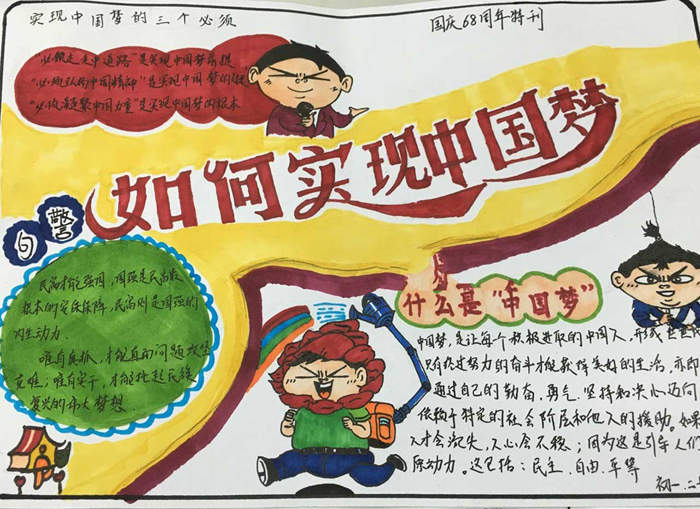 实现中国梦的三个必须
国庆68周年特刊
"必须走中道路"是实现中国梦前提
"必须弘扬中国精神"是实现中国梦的
"必须凝聚中国力量"是实现中国梦的根本
如何实现中国梦
警句
民富才能强国,国强是民富最
根本的实际保障,民富则是国强的
内生动力.
唯有真抓,才能直面问题攻坚
克难;唯有实干,才能托起民族
复兴的伟大梦想.
什么是"中国梦"
中国梦,是让每个积极进取的中国人,形成世世
只有经过努力的奋斗才能获得美好的生活,亦即
通过自己的勤奋、勇气、坚持和决心迈向
依赖于特定的社会阶层和他人的援助.如果
人才会流失,人心会不稳;因为这是引导人们
原动力。这包括:民主、自由、等
初一.二